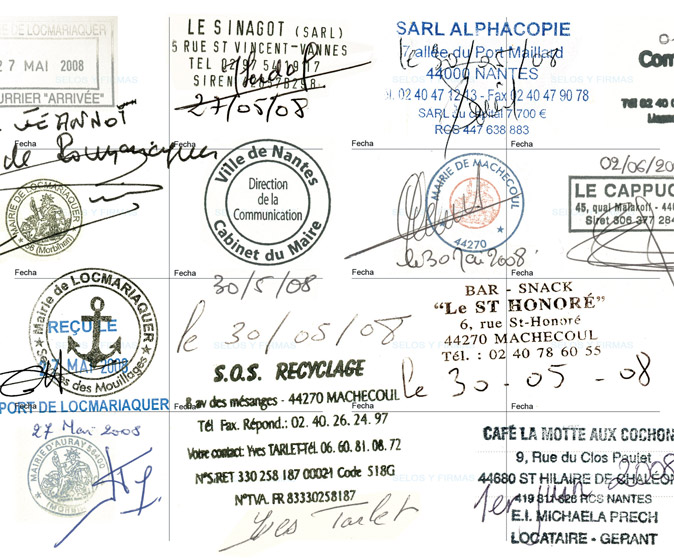 E DE LOCMARIAQUER
27 MAI 2008
URRIER "ARRIVÉE"
JEANNOT
de
Fecha
MAIRIE DE LOCMARIAQUER
56 (Morbihan)
Fecha
Mairie de LOCMARIAQUER
REÇU LE
27 MAI 2008
es des Mouillages
PORT DE LOCMARIAQUER
27 Mai 2008
MAIRIE D'AURAY 56400
LE SINAGOT (SARL)
5 RUE ST VINCENT-VANNES
TEL 02 97 54
SIREN
27/05/08
Fecha
Ville de Nantes
Direction
de la
Communication
Cabinet du Maire
Fecha
30/5/08
le 30/05/08
S.O.S. RECYCLAGE
8,av des mésanges - 44270 MACHECOUL
Tél Fax. Répond.: 02. 40. 26. 24. 97
Votre contact: Yves TARLET-Tél. 06. 60. 81. 08. 72
N°SIRET 330 258 187 00021 Code 518G
N°TVA. FR 83330258187
Yves Tarlet
SARL ALPHACOPIE
7 allée du Port Maillard
le 30/05/08
44000 NANTES
él. 02 40 47 12 13 - Fax 02 40 47 90 78
SARL au capital 7 700 €
RCS 447 638 883
Fecha
Fecha
MAIRIE DE MACHECOUL
44270
le 30 Mai 2008
Fecha
Fecha
BAR - SNACK
"Le ST HONORÉ"
6, rue St-Honoré
44270 MACHECOUL
Tél. : 02 40 78 60 55
le 30 - 05 - 08
Fecha
CAFÉ LA MOTTE AUX COCHON
9, Rue du Clos Paulet
44680 ST HILAIRE DE CHALÉON
1er juin 2008
419 811 826 RCS NANTES
E.I. MICHAELA PRECH
LOCATAIRE - GERANT
Com
Tél 02 40 0
02/06/20
LE CAPPUC
45, quai Malakoff - 440
Siret 306 377 284
SELOS Y FIRMAS